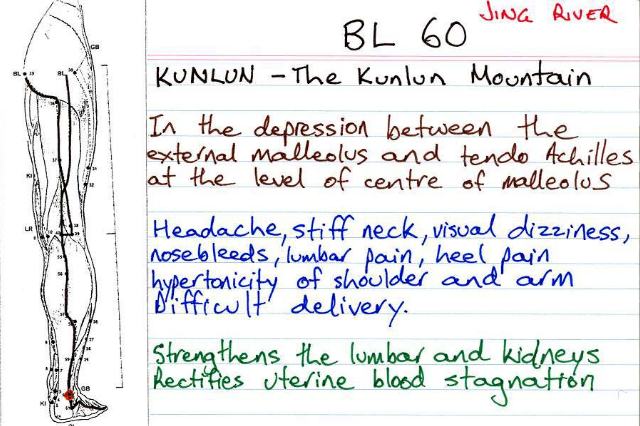 JING RIVER
BL 60
KUNLUN - The Kunlun Mountain
In the depression between the
external malleolus and tendo Achilles
at the level of centre of malleolus
Headache, stiff neck, visual dizziness,
nosebleeds, lumbar pain, heel pain
hypertonicity of shoulder and arm
Difficult delivery.
Strengthens the lumbar and kidneys
Rectifies uterine blood stagnation
GB
BL
BL
KI
LR
KI
GB